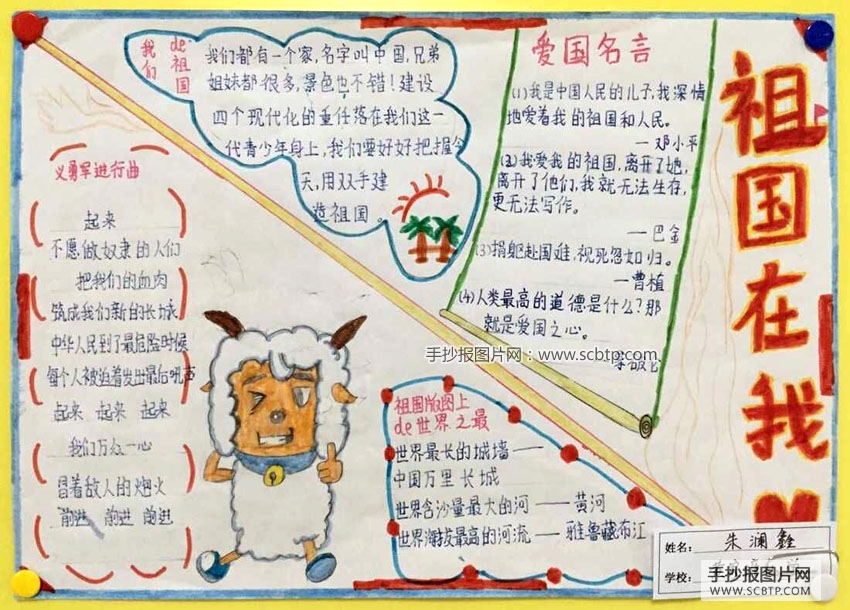 我们
de祖国
我们都有一个家,名字叫中国,兄弟
姐妹都很多,景色也不错!建设
四个现代化的重任落在我们这一
代青少年身上,我们要好好把握今
天,用双手建
造祖国。
爱国名言
(1)我是中国人民的儿子,我深情
地爱着我的祖国和人民。
—邓小平
(2)我爱我的祖国,离开了她,
离开了他们,我就无法生存,
更无法写作。
—巴金
(3)捐躯赴国难,视死忽如归。
—曹植
(4)人类最高的道德是什么?那
就是爱国之心。
祖国在我
义勇军进行曲
起来
不愿做奴隶的人们
把我们的血肉
筑成我们新的长城
中华人民到了最危险时候
每个人被迫着发出最后吼声
起来 起来 起来
我们万众一心
冒着敌人的炮火
前进 前进 前进
手抄报图片网:www.scbtp.com
祖国版图上
de世界之最
世界最长的城墙——
中国万里长城
世界含沙量最大的河——黄河
世界海拔最高的河流——雅鲁藏布江
姓名: 朱澜鑫
学校:
手抄报图片网
WWW.SCBTP.COM